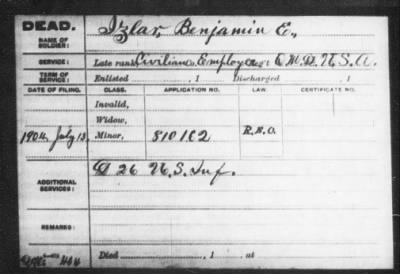 DEAD.
NAME OF SOLDIER: Izlar, Benjamin E.,
SERVICE: Late rank Civilian Employee, Q M. D. U.S.A.
TERM OF SERVICE: Enlisted , 1 Discharged , 1
DATE OF FILING. CLASS. APPLICATION NO. LAW. CERTIFICATE NO.
Invalid,
Widow,
1904, July 13, Minor, 810162
ADDITIONAL SERVICES: D 26 U.S. Inf.
REMARKS:
Died , 1 , at